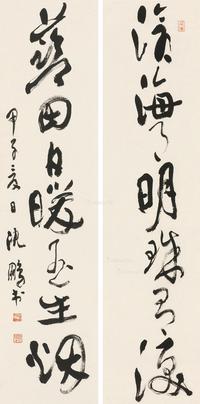 滄海月明珠有淚
藍田日暖玉生烟
甲子夏日沈鵬书